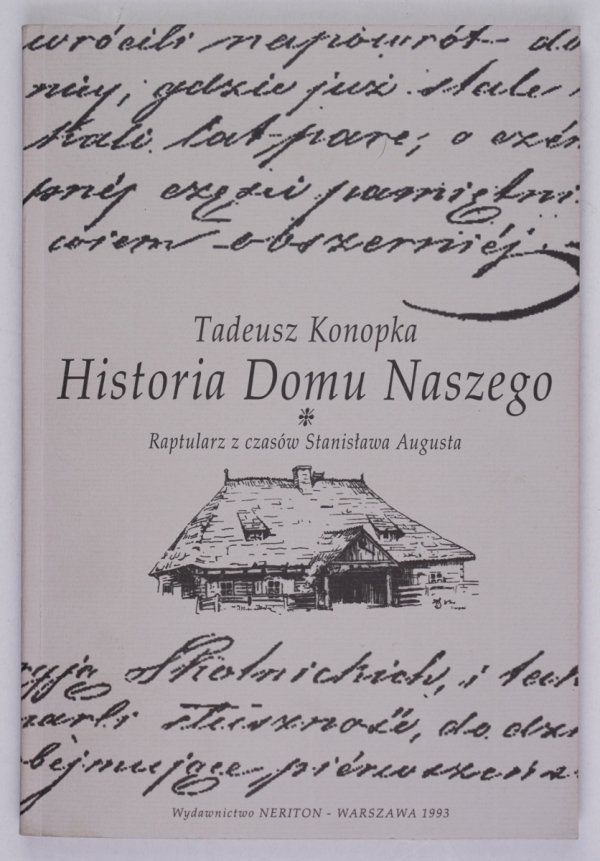 wrócili napowrót do
nicy, gdzie już stale
kali lat parę; o czém
pnéj części pamiętni
wiem obszerniéj.
Tadeusz Konopka
Historia Domu Naszego
Raptularz z czasów Stanisława Augusta
Skotnickich, i
słuszność, do
bejmujące pierwszeńs
Wydawnictwo NERITON - WARSZAWA 1993